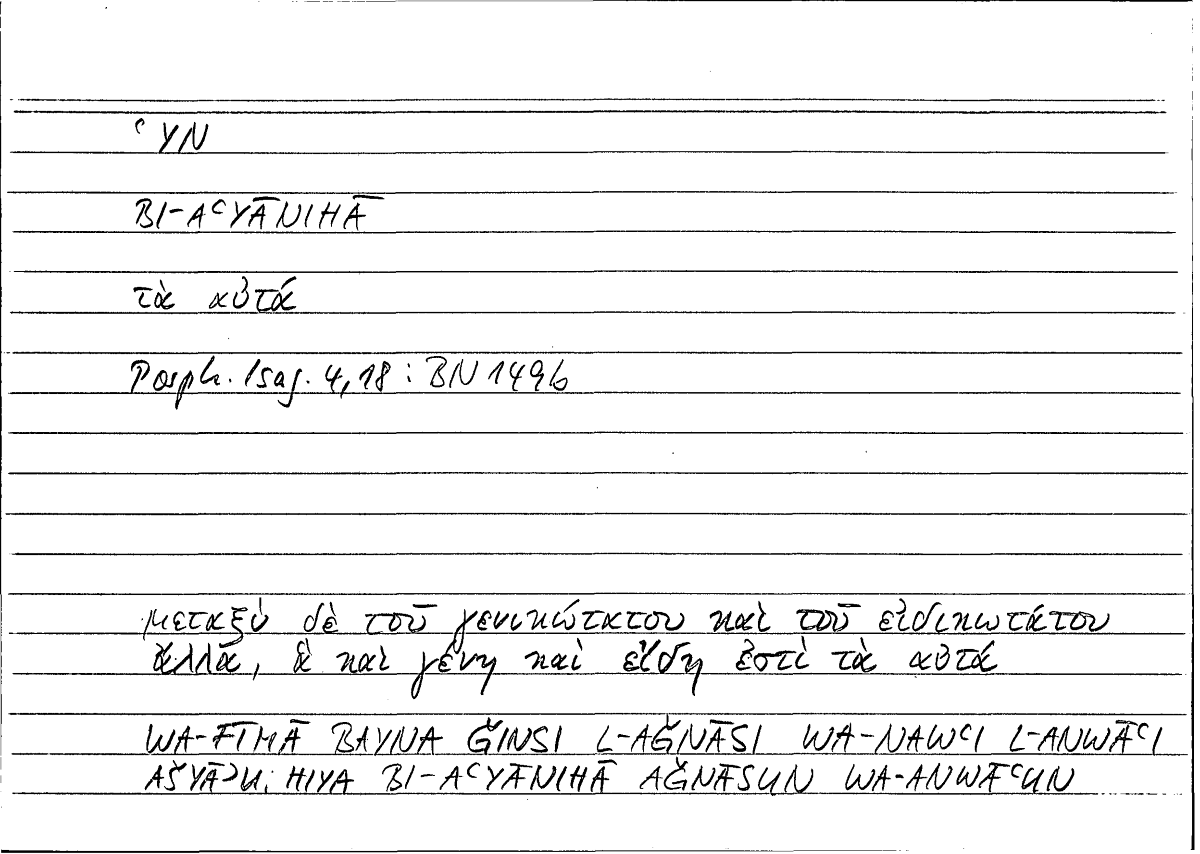 ʿYN
BI-AʿYĀNIHĀ
τὰ αὐτά
Porph. Isag. 4,18 : BN 149b
μεταξὺ δὲ τοῦ γενικώτατου καὶ τοῦ εἰδικωτάτου
ἄλλα, ἃ καὶ γένη καὶ εἴδη ἐστὶ τὰ αὐτά
WA-FĪMĀ BAYNA ǦINSI L-AǦNĀSI WA-NAWʿI L-ANWĀʿI
AŠYĀʾU, HIYA BI-AʿYĀNIHĀ AǦNĀSUN WA-ANWĀʿUN